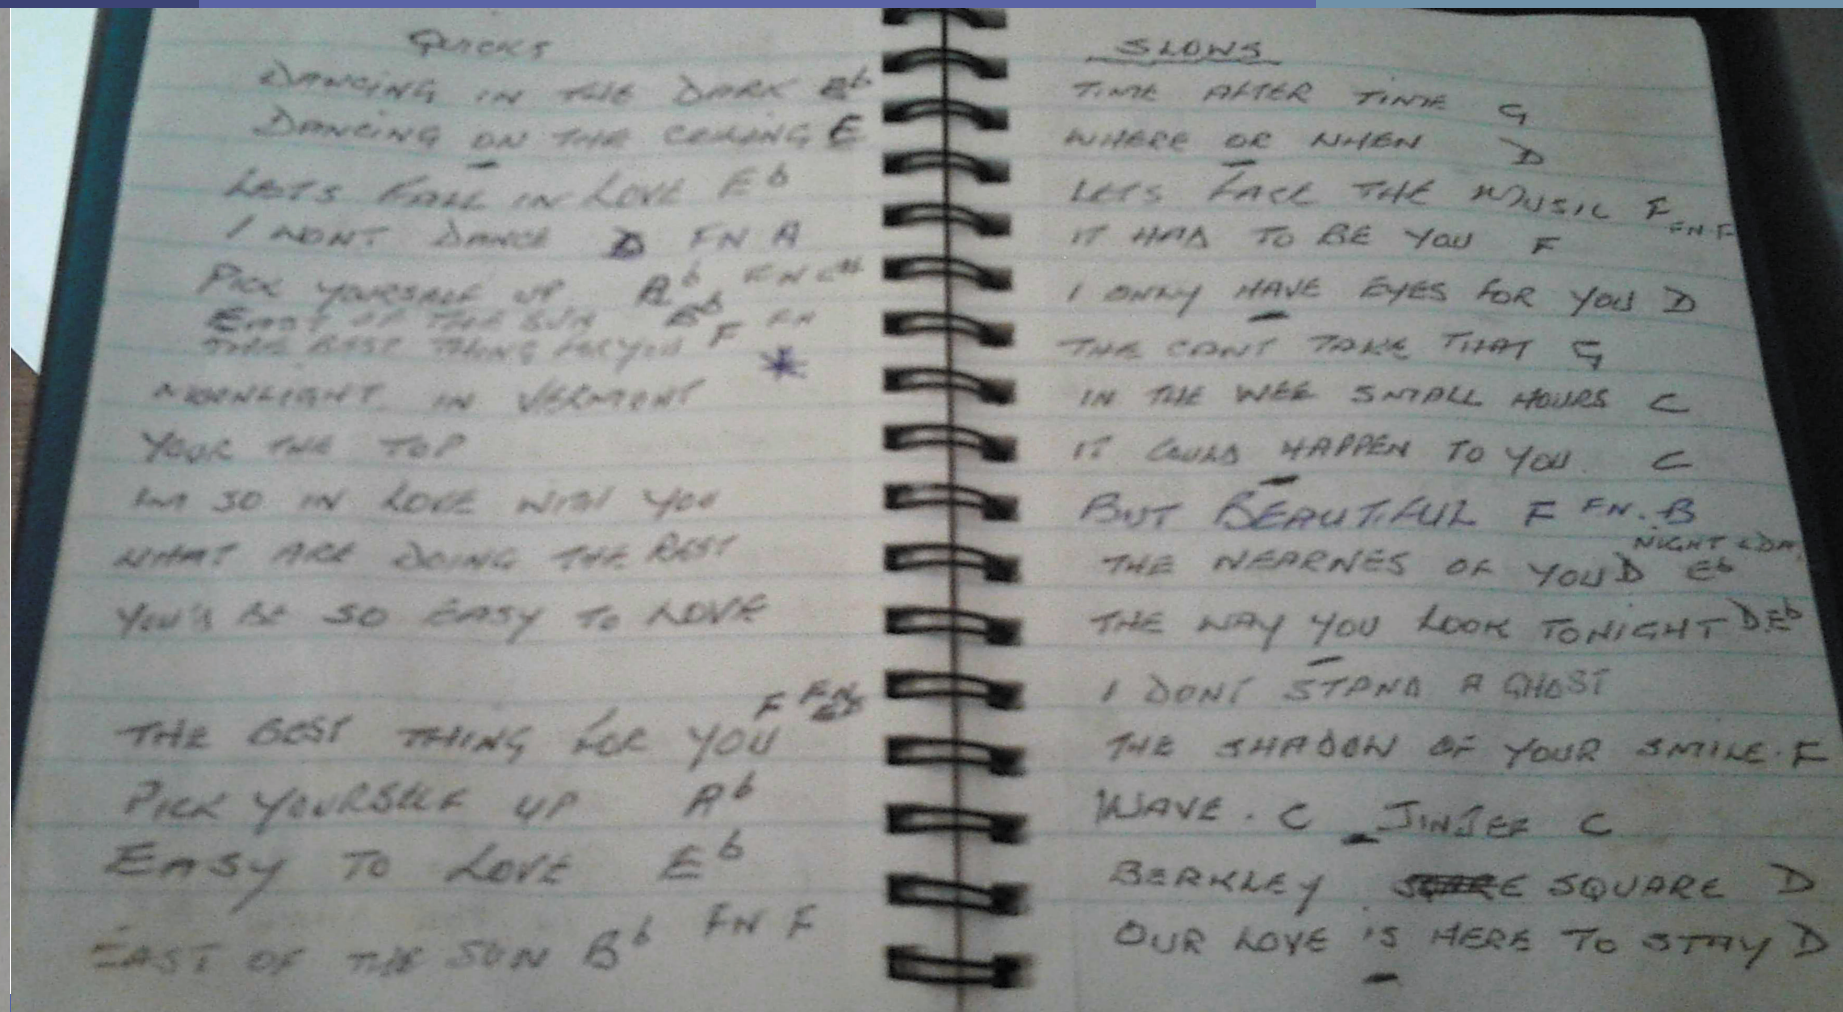 QUICKS
DANCING IN THE DARK Eb
DANCING ON THE CEILING E
LETS FALL IN LOVE Eb
I WONT DANCE D FN A
PICK YOURSELF UP Ab FN C#
EAST OF THE SUN Bb FN
THE BEST THING FOR YOU F
*
MOONLIGHT IN VERMONT
YOUR THE TOP
IM SO IN LOVE WITH YOU
WHAT ARE DOING THE REST
YOU'D BE SO EASY TO LOVE
THE BEST THING FOR YOU F FN
PICK YOURSELF UP Ab
EASY TO LOVE Eb
EAST OF THE SUN Bb FN F
SLOWS
TIME AFTER TIME G
WHERE OR WHEN D
LETS FACE THE MUSIC F FN.F
IT HAD TO BE YOU F
I ONLY HAVE EYES FOR YOU D
THE CANT TAKE THAT G
IN THE WEE SMALL HOURS C
IT COULD HAPPEN TO YOU. C
BUT BEAUTIFUL F FN. B
NIGHT & DA
THE NEARNES OF YOU D Eb
THE WAY YOU LOOK TONIGHT D.Eb
I DONT STAND A GHOST
THE SHADOW OF YOUR SMILE. F
WAVE. C JINJEE C
BERKLEY SQUARE D
OUR LOVE IS HERE TO STAY D